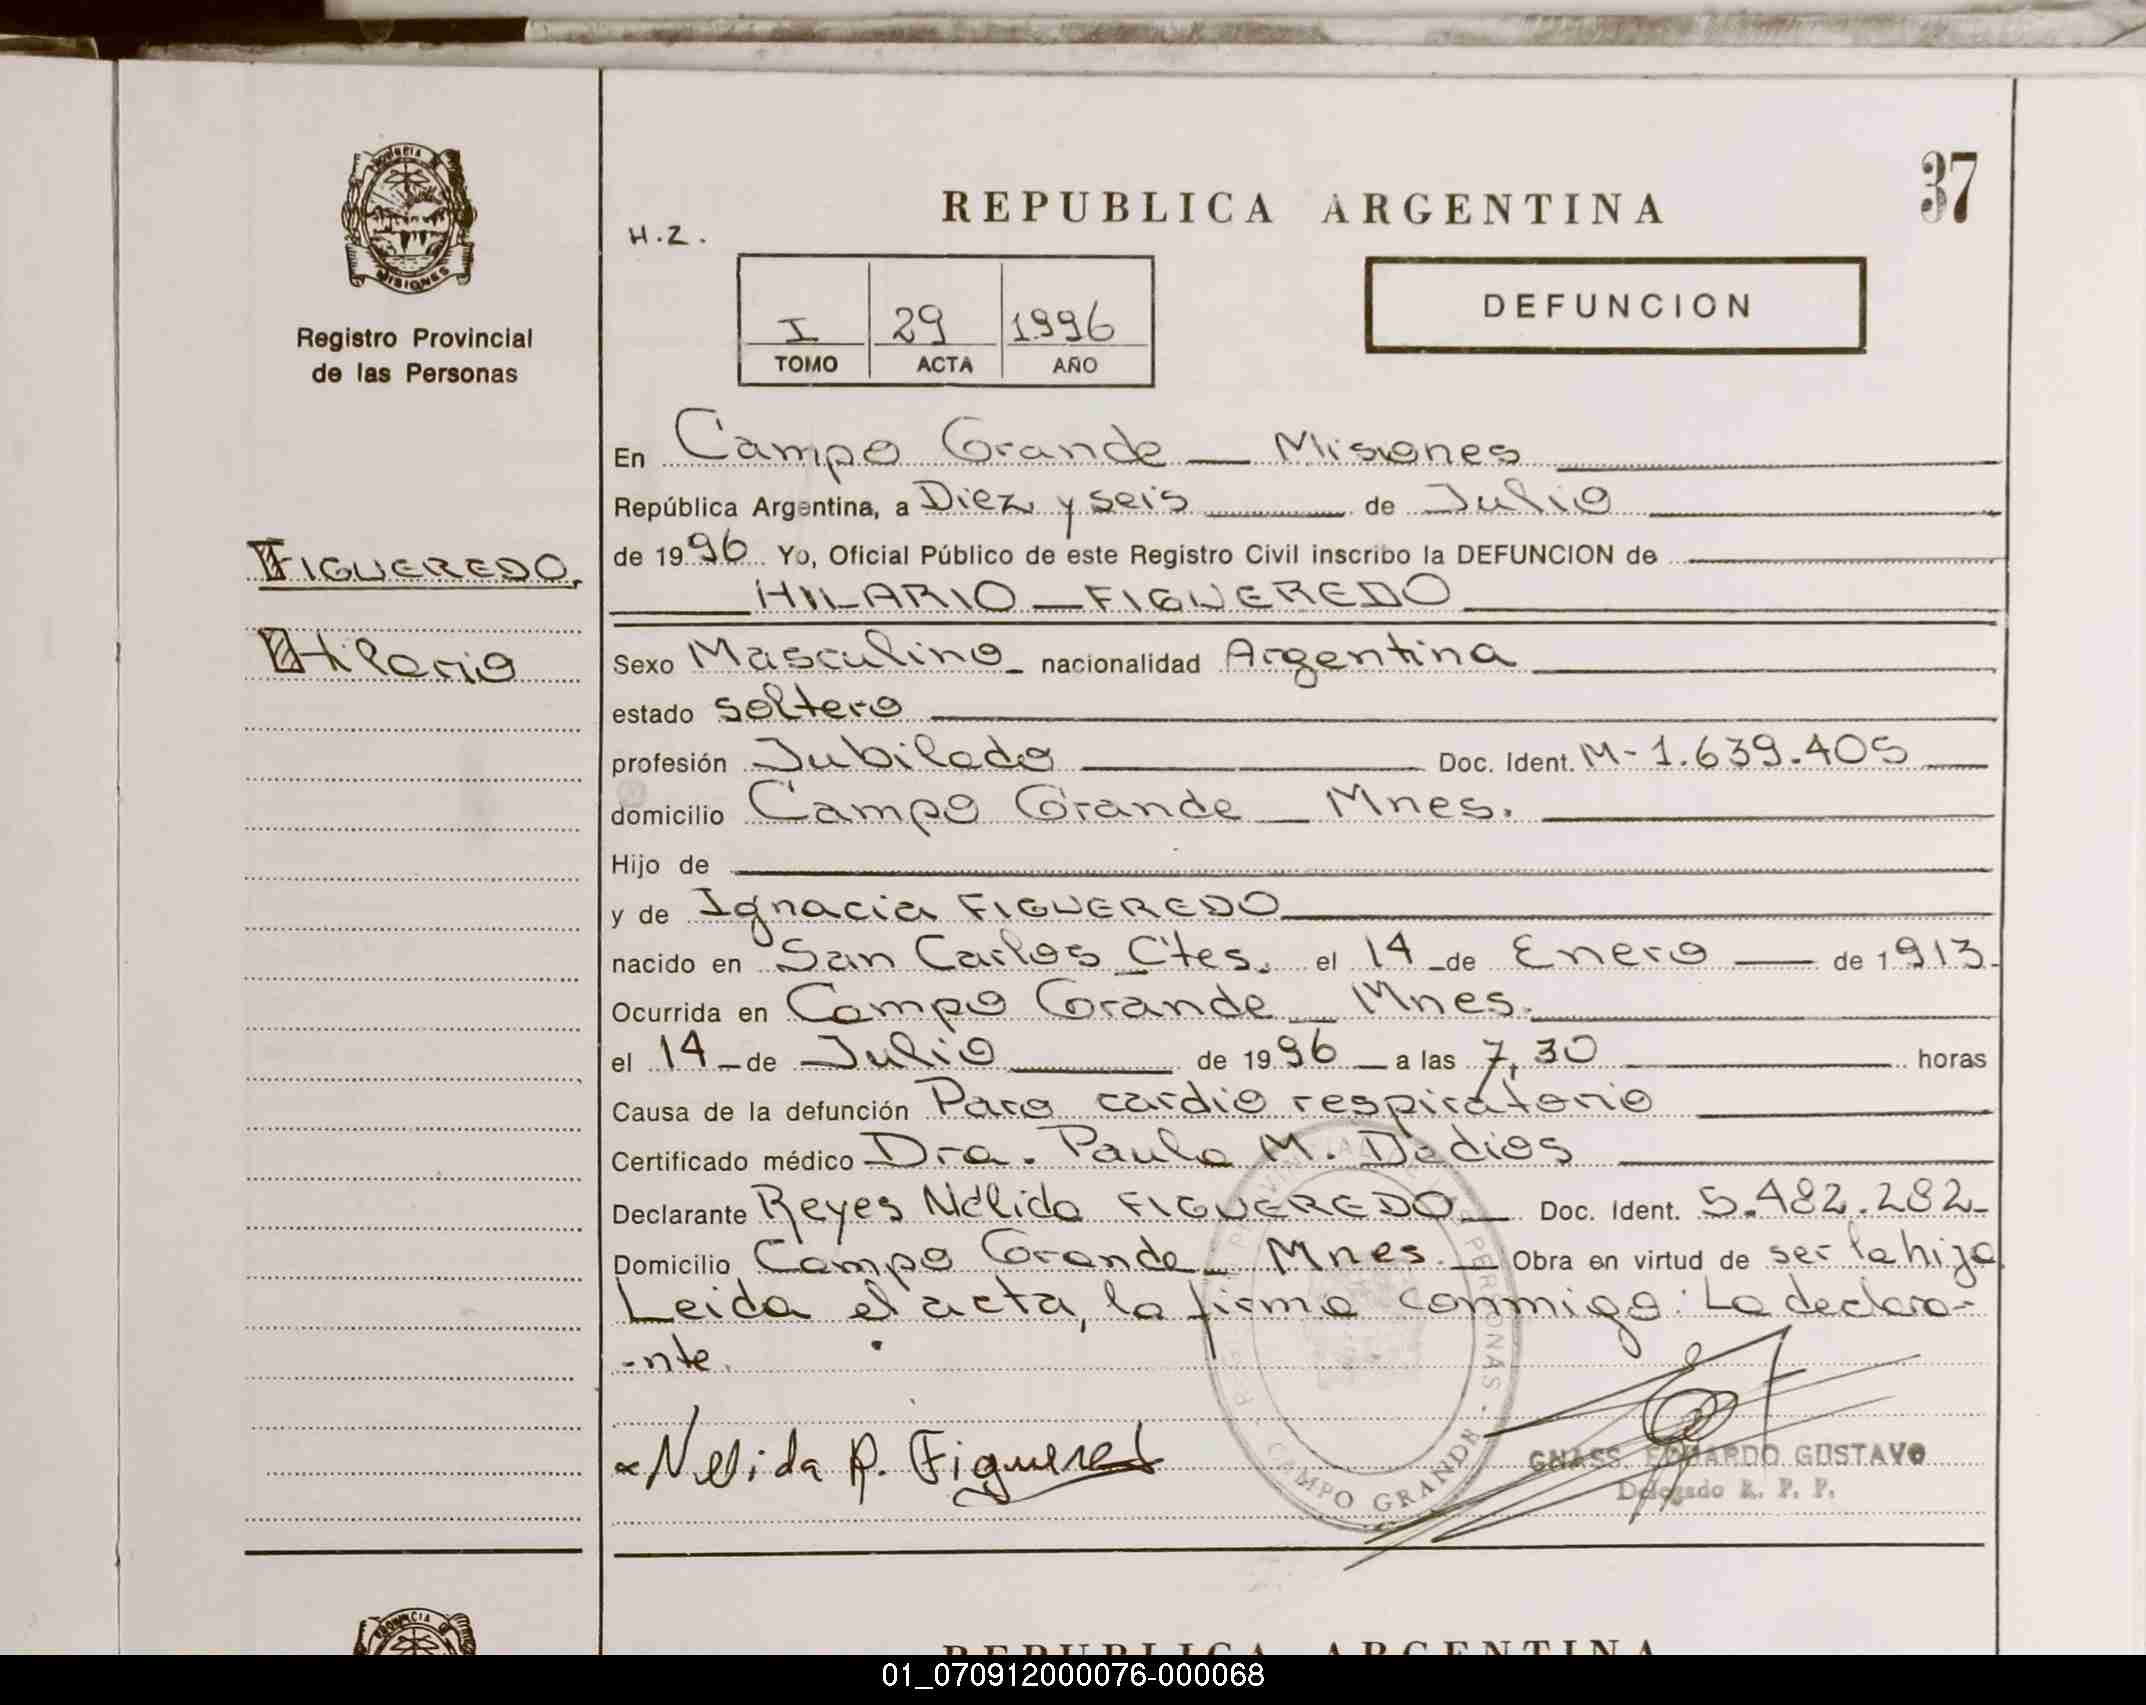 PROVINCIA DE
MISIONES
Registro Provincial
de las Personas
FIGUEREDO,
Hilario
37
REPUBLICA ARGENTINA
H.Z.
I 29 1996
TOMO ACTA AÑO
DEFUNCION
En Campo Grande — Misiones
República Argentina, a Diez y seis de Julio
de 1996 Yo, Oficial Público de este Registro Civil inscribo la DEFUNCION de
HILARIO — FIGUEREDO
Sexo Masculino nacionalidad Argentina
estado soltero
profesión Jubilado Doc. Ident. M-1.639.405
domicilio Campo Grande — Mnes.
Hijo de
y de Ignacia FIGUEREDO
nacido en San Carlos Ctes. el 14 de Enero de 1913.
Ocurrida en Campo Grande Mnes.
el 14 de Julio de 1996 a las 7,30 horas
Causa de la defunción Paro cardio respiratorio
Certificado médico Dra. Paula M. Dedios
Declarante Reyes Nélida FIGUEREDO Doc. Ident. 5.482.282
Domicilio Campo Grande Mnes. Obra en virtud de ser la hija
Leida el acta, la firma conmigo: La declara-
-nte.
Nelida R. Figueredo
CAMPO GRANDE
GNASS. EDUARDO GUSTAVO
Delegado R. P. P.
REPUBLICA ARGENTINA
01_070912000076-000068